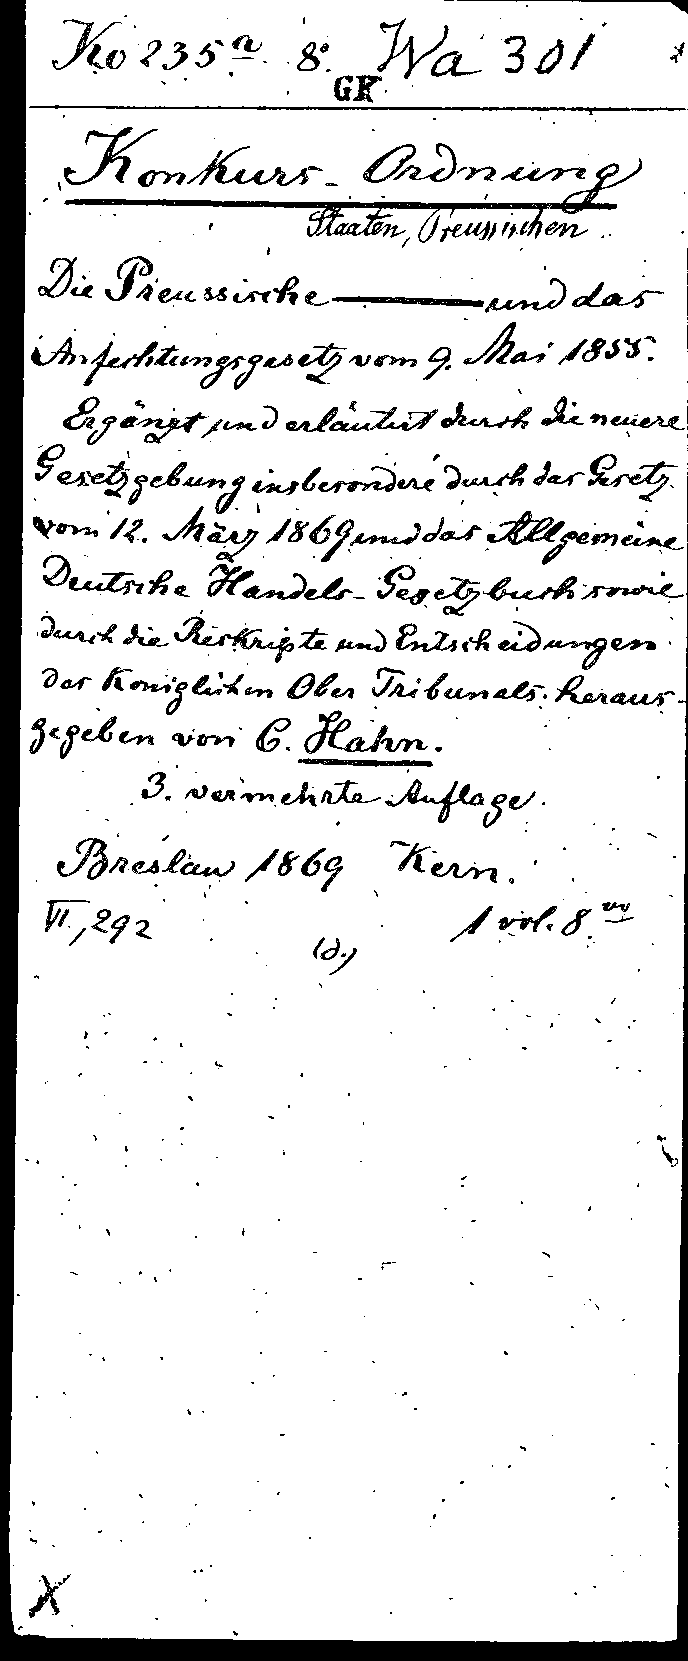 Ko 235ª 8º Wa 301
GK
Konkurs-Ordnung
Staaten, Preussischen
Die Preussische ——— und das
Anfechtungsgesetz vom 9. Mai 1855.
Ergänzt und erläutert durch die neuere
Gesetzgebung insbesondere durch das Gesetz
vom 12. März 1869 und das Allgemeine
Deutsche Handels-Gesetzbuch sowie
durch die Reskripte und Entscheidungen
des Königlichen Ober Tribunals. heraus-
gegeben von C. Hahn.
3. vermehrte Auflage.
Breslau 1869 Kern.
VI, 292 1 vol. 8vo
(d.)
X